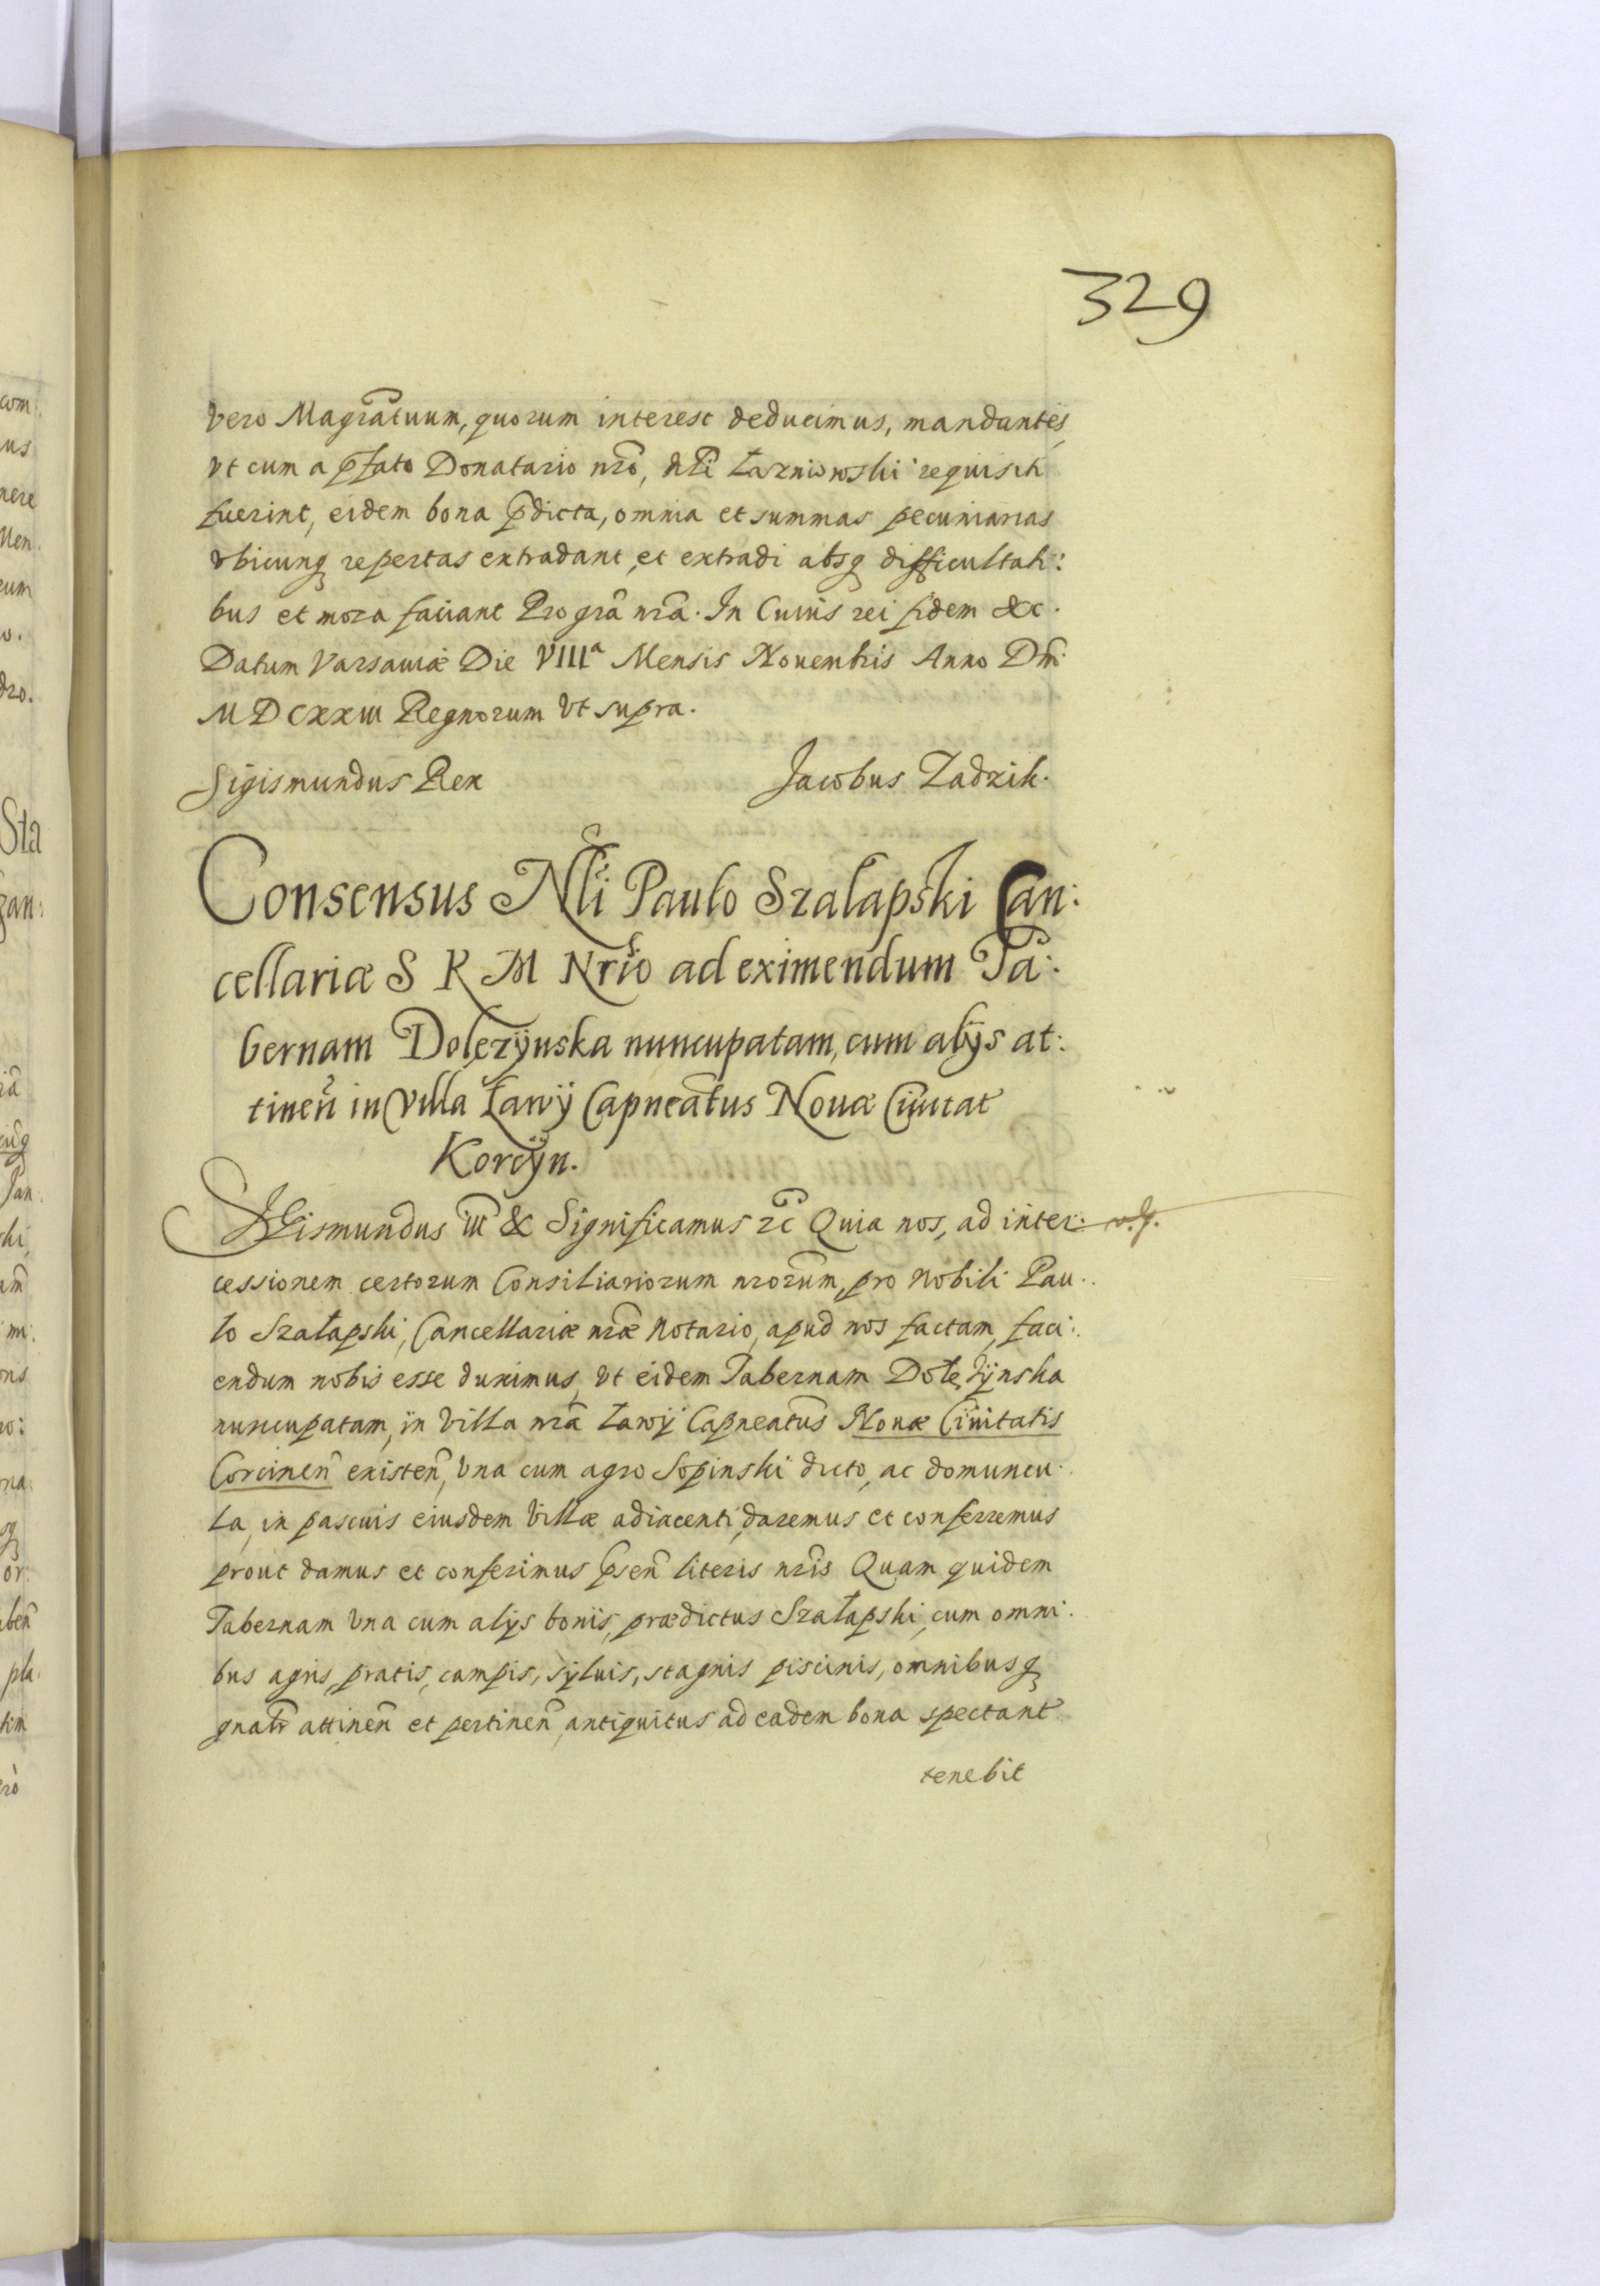 329
vero Magratuum, quorum interest deducimus, mandantes,
vt cum a pfato Donatario nro, Nli Łazniowski requisiti
fuerint, eidem bona pdicta, omnia et summas pecuniarias
vbicunq repertas extradant, et extradi absq difficultati:
bus et mora faciant Pro gra nra. In Cuius rei fidem &c.
Datum Varsauiæ Die VIIIa Mensis Nouembris Anno Dni.
MDCXXIII Regnorum vt supra.
Sigismundus Rex Jacobus Zadzik.
Consensus Nli Paulo Szalapski Can:
cellariæ S R M Nrio ad eximendum Ta:
bernam Dolęzÿnska nuncupatam, cum alijs at:
tinen in Villa Ławÿ Capneatus Nouæ Ciuitat
Korcÿn.
SIGismundus iii & Significamus rc Quia nos, ad inter:
cessionem certorum Consiliariorum nrorum, pro Nobili Pau:
lo Szałapski, Cancellariæ nræ Notario, apud nos factam, faci:
endum nobis esse duximus, vt eidem Tabernam Dołęzÿnska
nuncupatam, in Villa nra Ławÿ Capneatus Nouæ Ciuitatis
Corcinen existen, vna cum agro Sopinski dicto, ac domuncu:
la, in pascuis eiusdem Villæ adiacenti, daremus et conferremus
prout damus et conferimus psen literis nris Quam quidem
Tabernam vna cum alijs bonis, prædictus Szałapski, cum omni:
bus agris, pratis, campis, sÿluis, stagnis piscinis, omnibusq
gnalr attinen et pertinen, antiquitus ad eadem bona spectant
tenebit